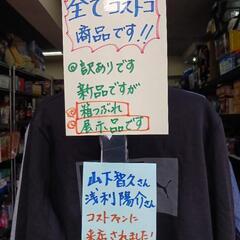 全てコストコ
商品です!!
◎訳ありです
新品ですが
◎箱つぶれ
◎展示品です
山下智久さん
浅利陽介さん
コストファンに
来店されました!